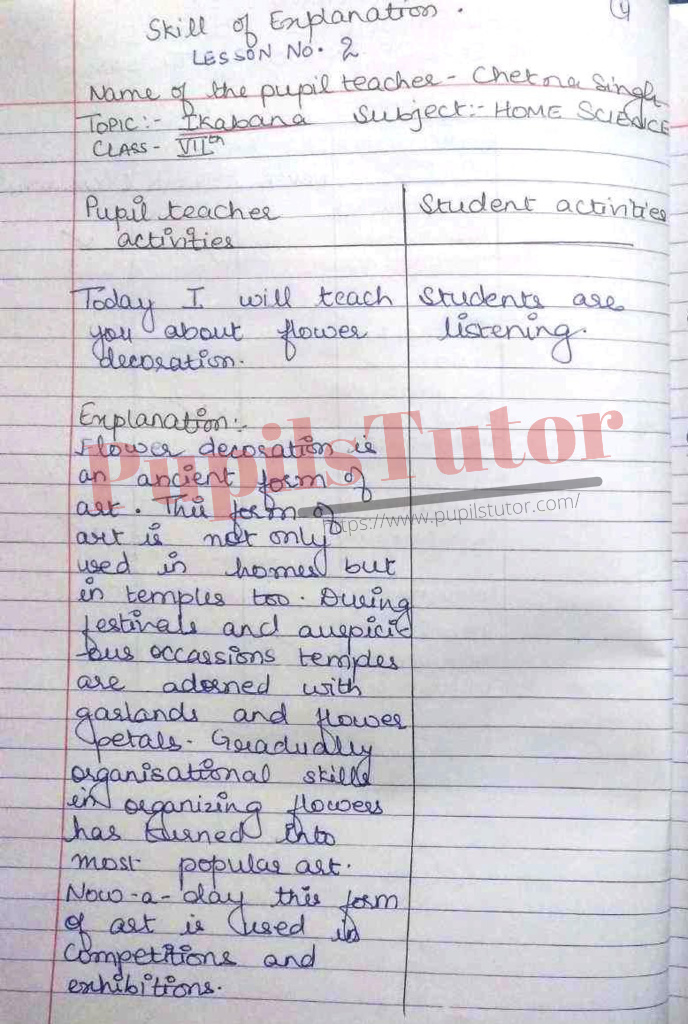 Skill of Explanation.
4
LESSON No. 2
Name of the pupil teacher - Chetna Singh
TOPIC:- Ikabana Subject:- HOME SCIENCE
CLASS - VIIth
Pupil teacher
activities
Student activities
Today I will teach
you about flower
decoration.
Students are
listening.
Explanation:-
Flower decoration is
an ancient form of
art. This form of
art is not only
used in homes but
in temples too. During
festivals and auspici
ous occassions temples
are adorned with
garlands and flower
petals. Gradually
organisational skills
in organizing flowers
has turned into
most popular art.
Now-a-day this form
of art is used in
competitions and
exhibitions.
PupilsTutor
https://www.pupilstutor.com/